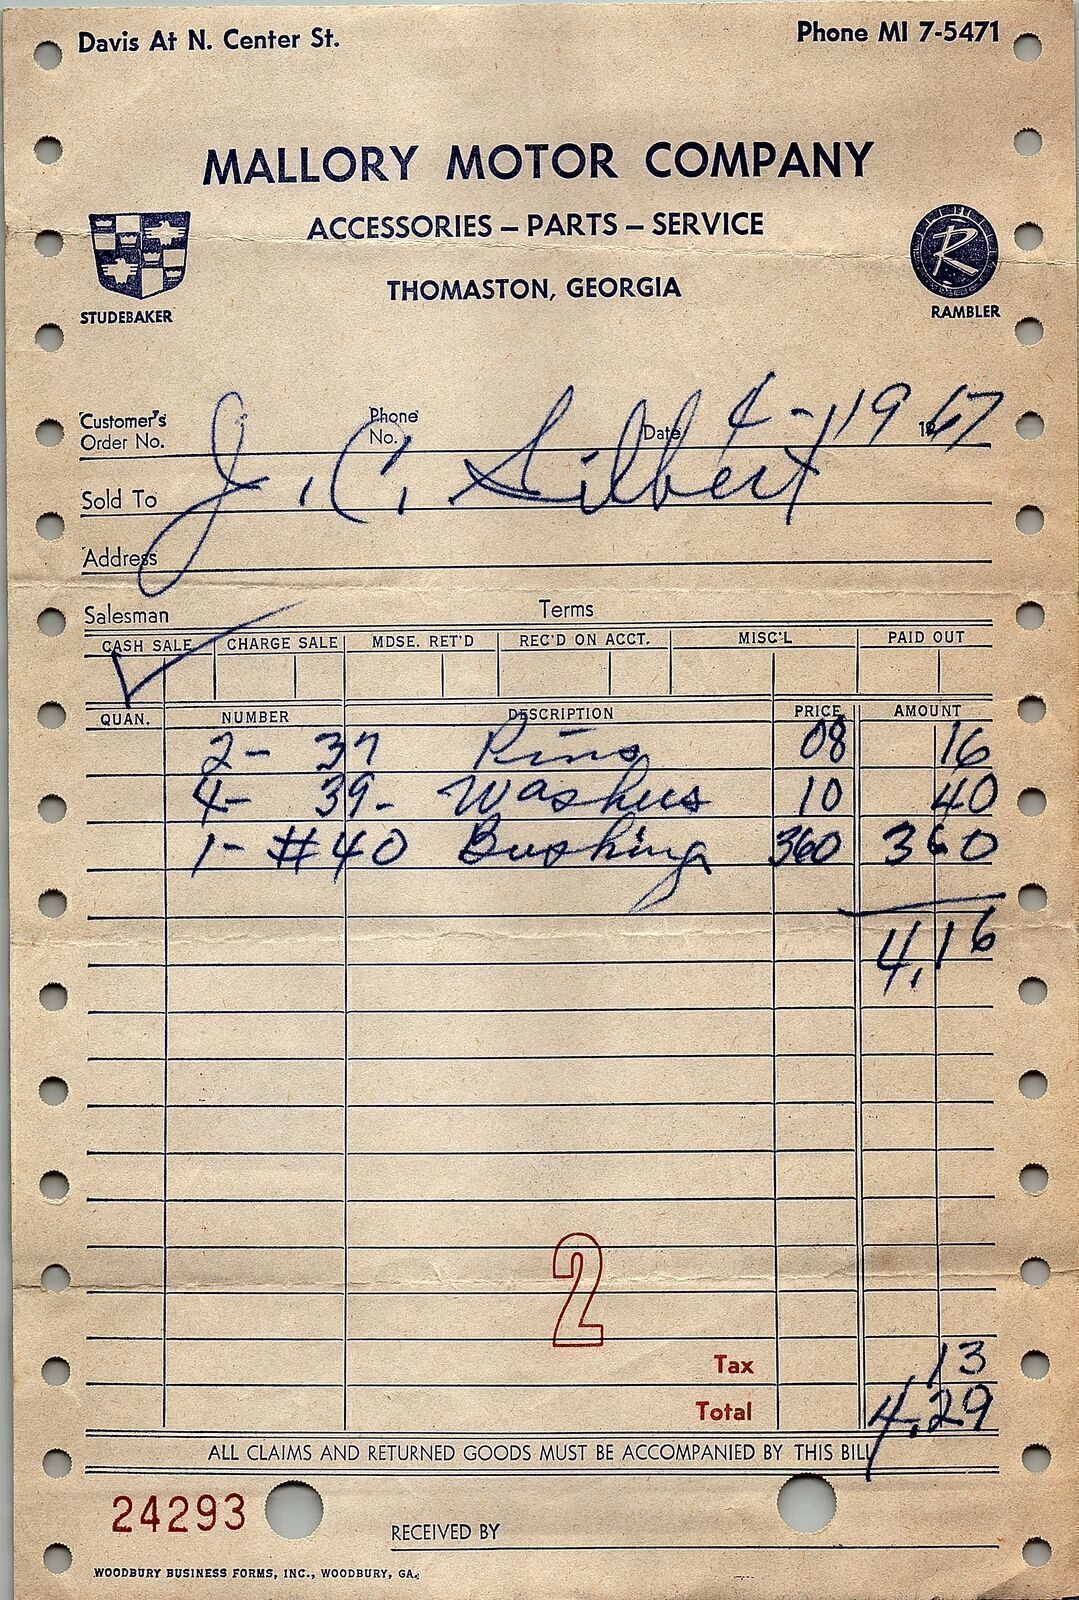 Davis At N. Center St. Phone MI 7-5471
MALLORY MOTOR COMPANY
ACCESSORIES – PARTS – SERVICE
THOMASTON, GEORGIA
STUDEBAKER R RAMBLER
Customer's Order No. Phone No. Date 4-19 1967
Sold To J. C. Silbert
Address
Salesman Terms
CASH SALE CHARGE SALE MDSE. RET'D REC'D ON ACCT. MISC'L PAID OUT
✓
QUAN. NUMBER DESCRIPTION PRICE AMOUNT
2- 37 Pins 08 16
4- 39- Washers 10 40
1- #40 Bushing 360 360
4.16
2
Tax 13
Total 4.29
ALL CLAIMS AND RETURNED GOODS MUST BE ACCOMPANIED BY THIS BILL
24293
RECEIVED BY
WOODBURY BUSINESS FORMS, INC., WOODBURY, GA.